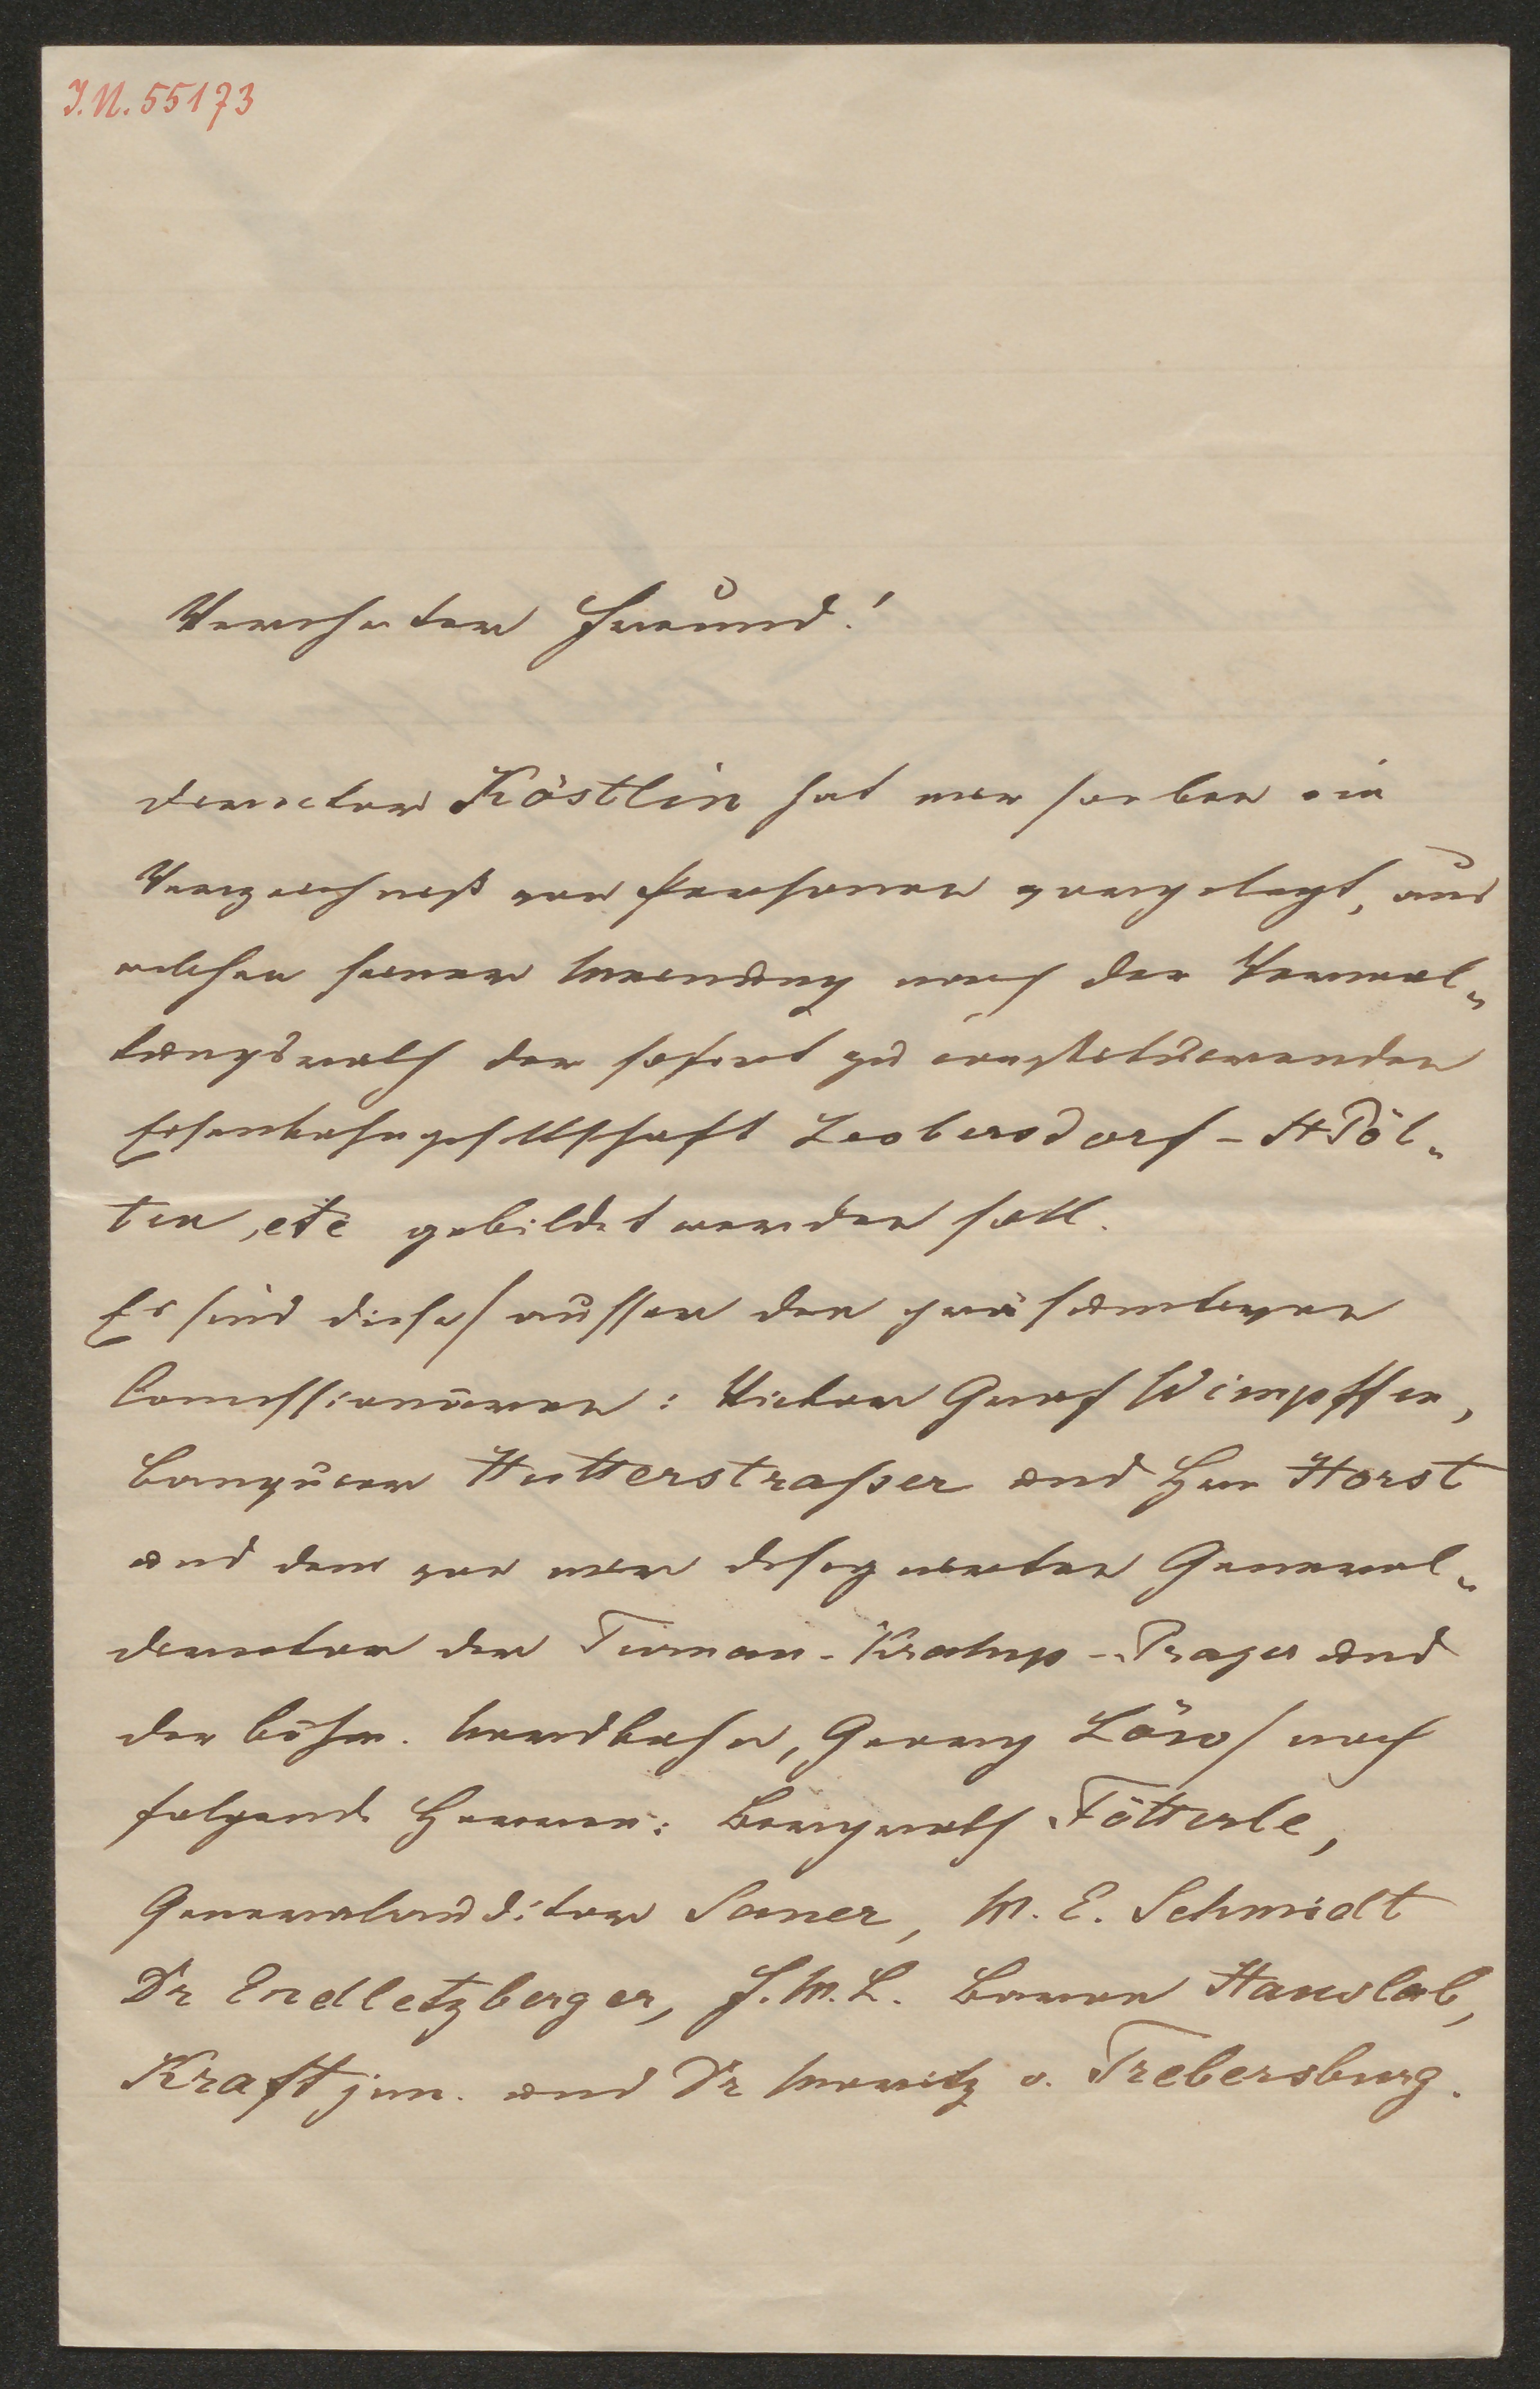 I.N. 55173
Verehrter Freund!
Director Köstlin hat mir soeben ein
Verzeichniß von Personen vorgelegt, aus
welchen seiner Meinung nach der Verwal-
tungsrath der sofort zu constituirenden
Eisenbahngesellschaft Leobersdorf-St Pöl-
ten, etc gebildet werden soll.
Es sind dieses/ausser den präsumtiven
Concessionären: Victor Graf Wimpffen,
Banquier Hutterstraßer und Herr Horst
und dem von mir designirten General-
director der Turnau-Kralup-Prager und
der böhm. Nordbahn, Georg Löw/ noch
folgende Herren: Bergrath Fötterle,
Generalauditor Saner, M. E. Schmidt
Dr Endletzberger, F.M.L. Baron Hauslab,
Kraft jun. und Dr Moritz v. Trebersburg.